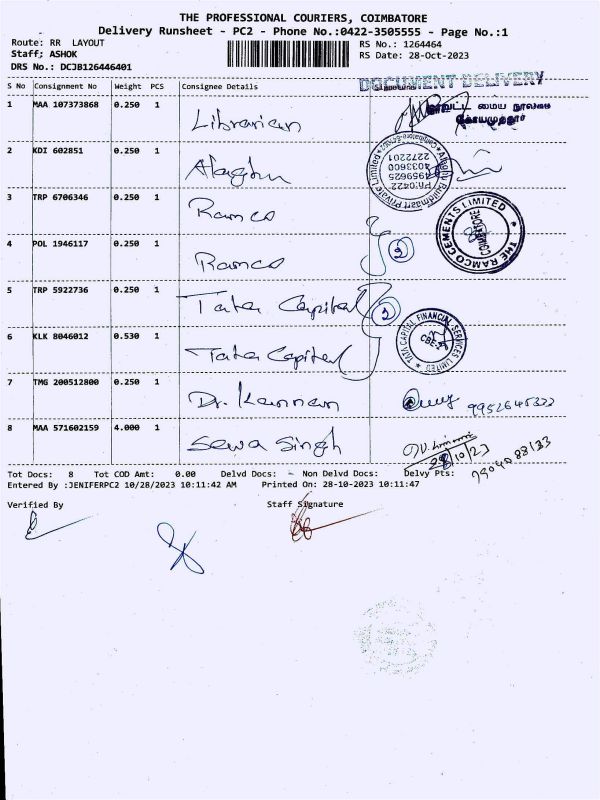 THE PROFESSIONAL COURIERS, COIMBATORE
Delivery Runsheet - PC2 - Phone No.:0422-3505555 - Page No.:1
Route: RR LAYOUT
RS No.: 1264464
Staff; ASHOK
RS Date: 28-Oct-2023
DRS No.: DCJB126446401
DOCUMENT DELIVERY
S No Consignment No Weight PCS Consignee Details
1 MAA 107373868 0.250 1 Librarian
மைய நூலகம்
கோயமுத்தூர்
2 KDI 602851 0.250 1
Buildmaart Private Limited
Coimbatore
Ph:0422
4959625
4033600
2272201
3 TRP 6706346 0.250 1 Ramco
THE RAMCO CEMENTS LIMITED
COIMBATORE
4 POL 1946117 0.250 1 Ramco
2
5 TRP 5922736 0.250 1 Tata Capital
2
TATA CAPITAL FINANCIAL SERVICES LIMITED
6 KLK 8046012 0.530 1 Tata Capital
7 TMG 200512800 0.250 1 Dr. Kannan
8 MAA 571602159 4.000 1 Sewa Singh
28/10/23
Tot Docs: 8 Tot COD Amt: 0.00 Delvd Docs: - Non Delvd Docs: Delvy Pts:
Entered By :JENIFERPC2 10/28/2023 10:11:42 AM Printed On: 28-10-2023 10:11:47
Verified By Staff Signature